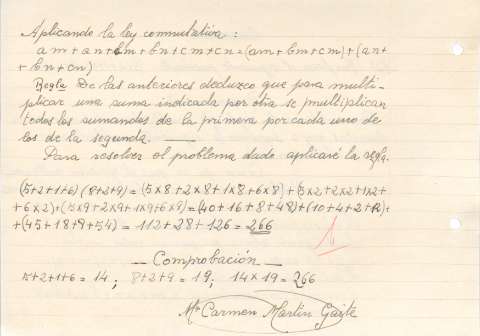 Aplicando la ley conmutativa:
am+an+bm+bn+cm+cn=(am+bm+cm)+(an+
+bn+cn)
Regla De las anteriores deduzco que para multi-
plicar una suma indicada por otra se multiplican
todos los sumandos de la primera por cada uno de
los de la segunda. —
Para resolver el problema dado aplicaré la regla.
(5+2+1+6)(8+2+9)=(5x8+2x8+1x8+6x8)+(5x2+2x2+1x2+
+6x2)+(5x9+2x9+1x9+6x9)=(40+16+8+48)+(10+4+2+12)+
+(45+18+9+54)=112+28+126=266
— Comprobación —
5+2+1+6=14; 8+2+9=19; 14x19=266
Mª Carmen Martín Gaite